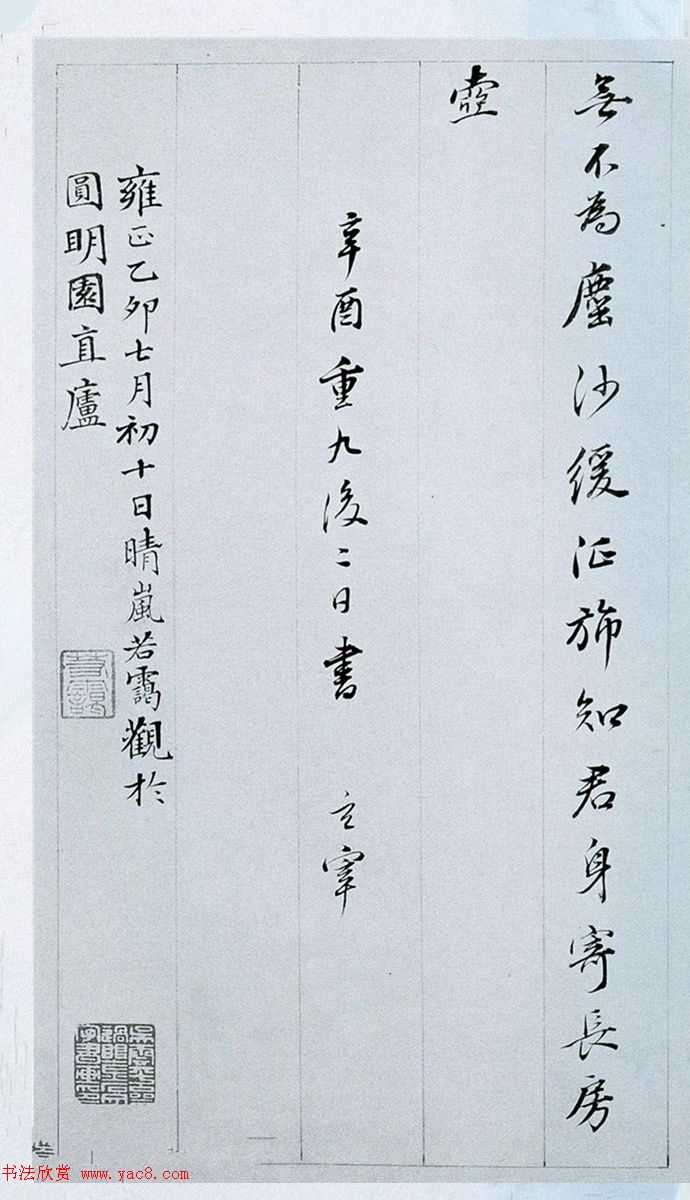 無不為塵沙緩征旆知君身寄長房
壺
辛酉重九後二日書　玄宰
雍正乙卯七月初十日晴嵐若靄觀於
圓明園直廬
若靄
书法欣赏 www.yac8.com